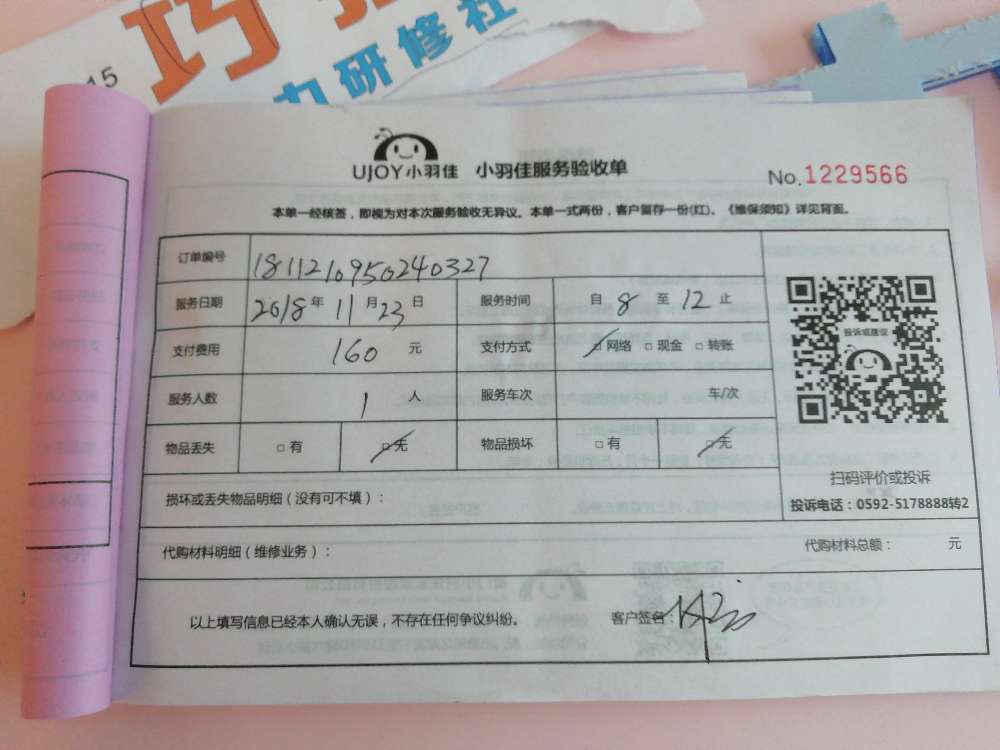 15
巧
力研修社
UJOY小羽佳 小羽佳服务验收单
No.1229566
本单一经核签，即视为对本次服务验收无异议。本单一式两份，客户留存一份(红)。《维保须知》详见背面。
订单编号 181121095024 0327
服务日期 2018年11月23日 服务时间 自8至12止
支付费用 160元 支付方式 □网络 □现金 □转账
投诉或建议
服务人数 1人 服务车次 车/次
物品丢失 □有 □无 物品损坏 □有 □无
扫码评价或投诉
损坏或丢失物品明细（没有可不填）：
投诉电话：0592-5178888转2
代购材料明细（维修业务）： 代购材料总额： 元
以上填写信息已经本人确认无误，不存在任何争议纠纷。 客户签名：